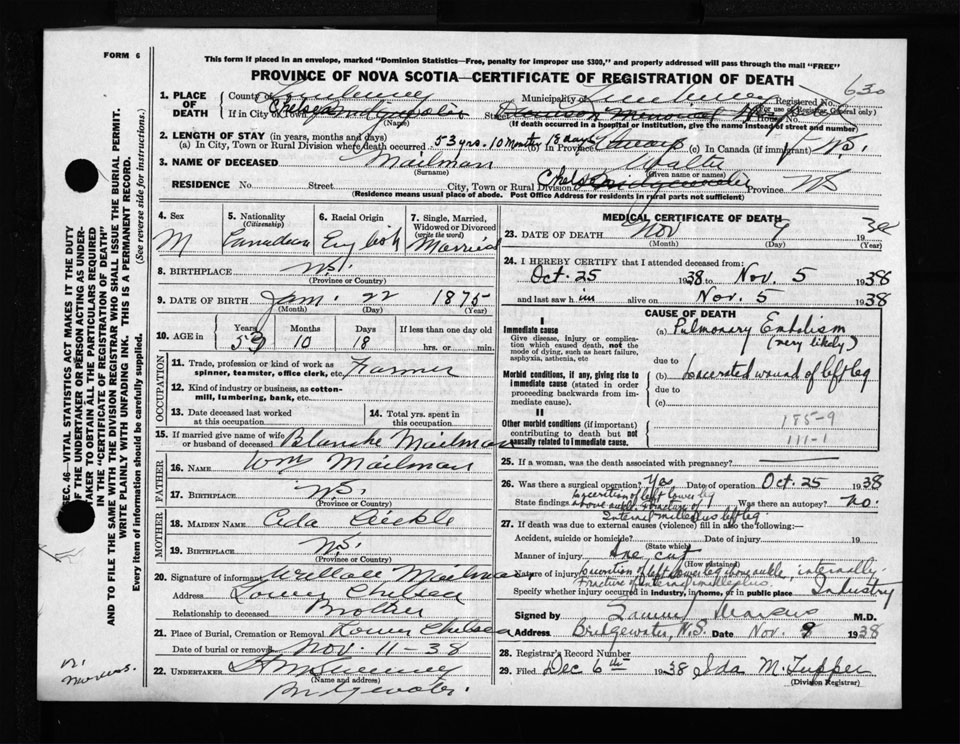 FORM 6
This form if placed in an envelope, marked "Dominion Statistics—Free, penalty for improper use $300," and properly addressed will pass through the mail "FREE"
PROVINCE OF NOVA SCOTIA—CERTIFICATE OF REGISTRATION OF DEATH
630
1. PLACE OF DEATH County of Lunenburg Municipality of Lunenburg Registered No.
If in City or Town Chelsea (Name) Street Dawson Memorial Hospital House No. (For use of Registrar General only)
(If death occurred in a hospital or institution, give the name instead of street and number)
2. LENGTH OF STAY (in years, months and days)
(a) In City, Town or Rural Division where death occurred 53 yrs. 10 months 18 days (b) In Province always (c) In Canada (if immigrant) N.S.
3. NAME OF DECEASED Mailman (Surname) Walter (Given name or names)
RESIDENCE No. Street City, Town or Rural Division Chelsea Bridgewater Province N.S
(Residence means usual place of abode. Post Office Address for residents in rural parts not sufficient)
4. Sex M
5. Nationality (Citizenship) Canadian
6. Racial Origin English
7. Single, Married, Widowed or Divorced (write the word) Married
8. BIRTHPLACE N.S. (Province or Country)
9. DATE OF BIRTH Jan. 22 1875
(Month) (Day) (Year)
10. AGE in Years 53 Months 10 Days 18 If less than one day old hrs. or min.
OCCUPATION
11. Trade, profession or kind of work as spinner, teamster, office clerk, etc. Farmer
12. Kind of industry or business, as cotton-mill, lumbering, bank, etc.
13. Date deceased last worked at this occupation
14. Total yrs. spent in this occupation
15. If married give name of wife or husband of deceased Blanche Mailman
FATHER
16. NAME Wm Mailman
17. BIRTHPLACE N.S. (Province or Country)
MOTHER
18. MAIDEN NAME Ada
19. BIRTHPLACE N.S. (Province or Country)
20. Signature of informant Wallace Mailman
Address Lower Chelsea
Relationship to deceased Brother
21. Place of Burial, Cremation or Removal Lower Chelsea
Date of burial or removal Nov. 11-38
22. UNDERTAKER
(Name and address)
Bridgewater.
MEDICAL CERTIFICATE OF DEATH
23. DATE OF DEATH Nov 9 1938
(Month) (Day) (Year)
24. I HEREBY CERTIFY that I attended deceased from:
Oct. 25 1938 to Nov. 5 1938
and last saw him alive on Nov. 5 1938
CAUSE OF DEATH
I
Immediate cause
Give disease, injury or complication which caused death, not the mode of dying, such as heart failure, asphyxia, asthenia, etc
(a) Pulmonary Embolism (very likely)
due to
Morbid conditions, if any, giving rise to immediate cause (stated in order proceeding backwards from immediate cause).
(b) Lacerated wound of left leg
due to
(c)
II
Other morbid conditions (if important) contributing to death but not causally related to immediate cause.
185-9
111-1
25. If a woman, was the death associated with pregnancy?
26. Was there a surgical operation? Yes Date of operation Oct. 25 1938
State findings Laceration of left lower leg above ankle & fracture of internal malleolus left leg Was there an autopsy? No.
27. If death was due to external causes (violence) fill in also the following:—
Accident, suicide or homicide? (State which) Date of injury 19
Manner of injury Axe cut (How sustained)
Nature of injury Laceration of left lower leg above ankle, internally. Fracture of internal malleolus.
Specify whether injury occurred in industry, in home, or in public place Industry
Signed by Sammy Marcus M.D.
Address Bridgewater, N.S. Date Nov. 9 1938
28. Registrar's Record Number
29. Filed Dec 6th 1938 Ida M. Tupper
(Division Registrar)
SEC. 46—VITAL STATISTICS ACT MAKES IT THE DUTY
OF THE UNDERTAKER OR PERSON ACTING AS UNDER-
TAKER TO OBTAIN ALL THE PARTICULARS REQUIRED
IN THE "CERTIFICATE OF REGISTRATION OF DEATH"
AND TO FILE THE SAME WITH THE DIVISION REGISTRAR WHO SHALL ISSUE THE BURIAL PERMIT.
WRITE PLAINLY WITH UNFADING INK. THIS IS A PERMANENT RECORD.
Every item of information should be carefully supplied. (See reverse side for instructions.)
Marcus.